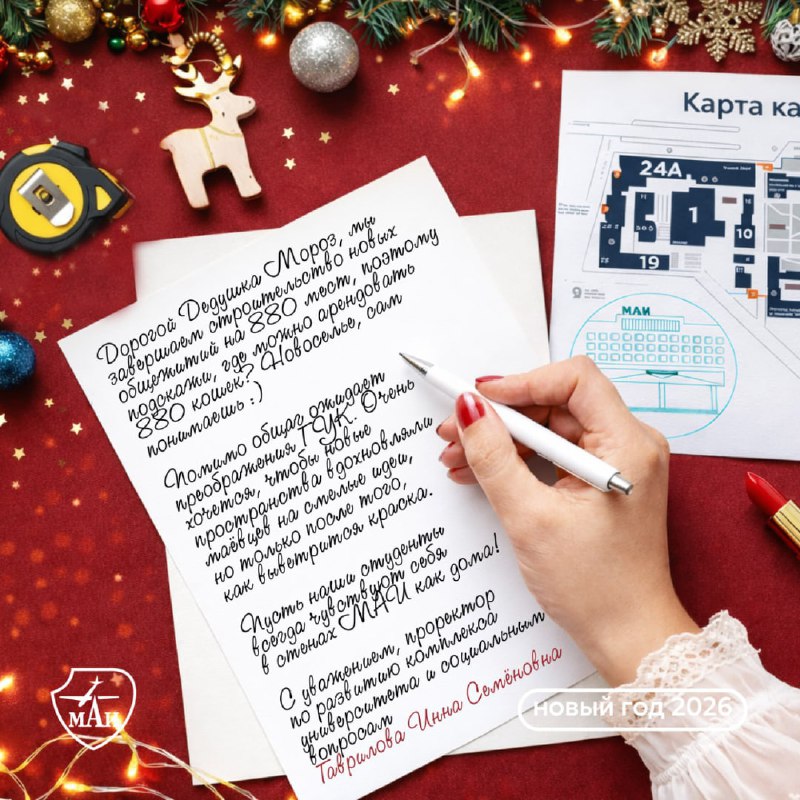 Карта ка
24А
1
10
19
МАИ
Дорогой Дедушка Мороз, мы
завершаем строительство новых
общежитий на 880 мест, поэтому
подскажи, где можно арендовать
880 кошек? Новоселье, сам
понимаешь :)
Помимо общаг ожидает
преображения ГУК. Очень
хочется, чтобы новые
пространства вдохновляли
маёвцев на смелые идеи,
но только после того,
как выветрится краска.
Пусть наши студенты
всегда чувствуют себя
в стенах МАИ как дома!
С уважением, проректор
по развитию комплекса
университета и социальным
вопросам
Гаврилова Инна Семёновна
МАИ
новый год 2026